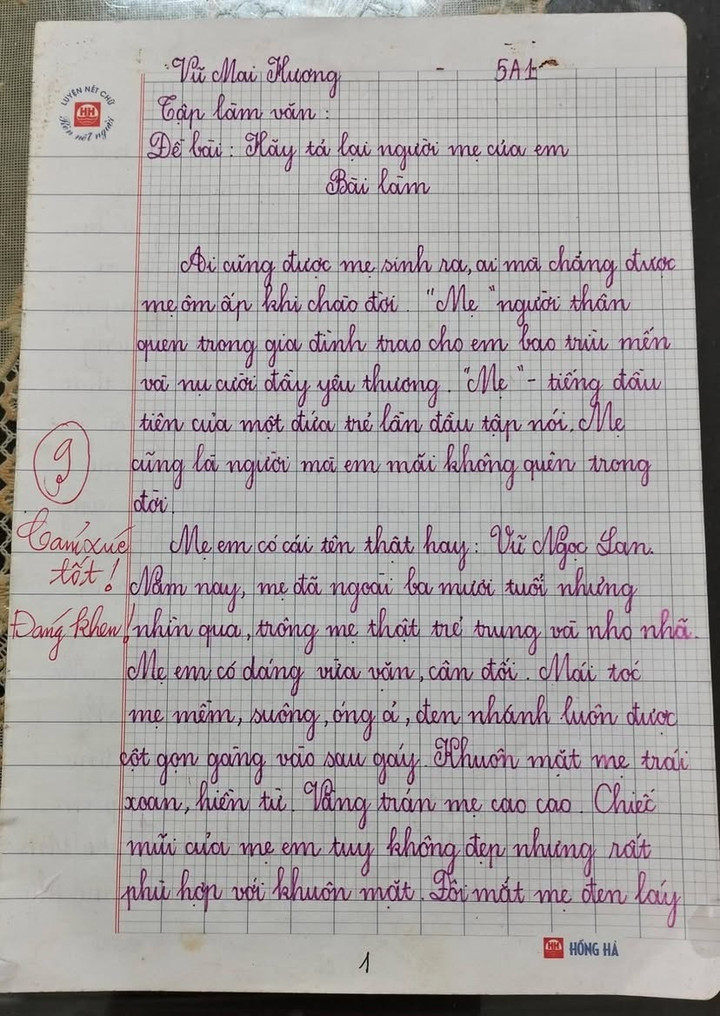 Vũ Mai Hương - 5A1
Tập làm văn:
Đề bài: Hãy tả lại người mẹ của em
Bài làm
Ai cũng được mẹ sinh ra, ai mà chẳng được
mẹ ôm ấp khi chào đời. "Mẹ" người thân
quen trong gia đình trao cho em bao trìu mến
và nụ cười đầy yêu thương. "Mẹ" - tiếng đầu
tiên của một đứa trẻ lần đầu tập nói. Mẹ
cũng là người mà em mãi không quên trong
đời.
Mẹ em có cái tên thật hay: Vũ Ngọc Lan.
Năm nay, mẹ đã ngoài ba mươi tuổi nhưng
nhìn qua, trông mẹ thật trẻ trung và nho nhã.
Mẹ em có dáng vừa vặn, cân đối. Mái tóc
mẹ mềm, suông, óng ả, đen nhánh luôn được
cột gọn gàng vào sau gáy. Khuôn mặt mẹ trái
xoan, hiền từ. Vầng trán mẹ cao cao. Chiếc
mũi của mẹ em tuy không đẹp nhưng rất
phù hợp với khuôn mặt. Đôi mắt mẹ đen láy
9
Cảm xúc
tốt!
Đáng khen!
LUYỆN NÉT CHỮ
HH
Rèn nết người
HH HỒNG HÀ
1